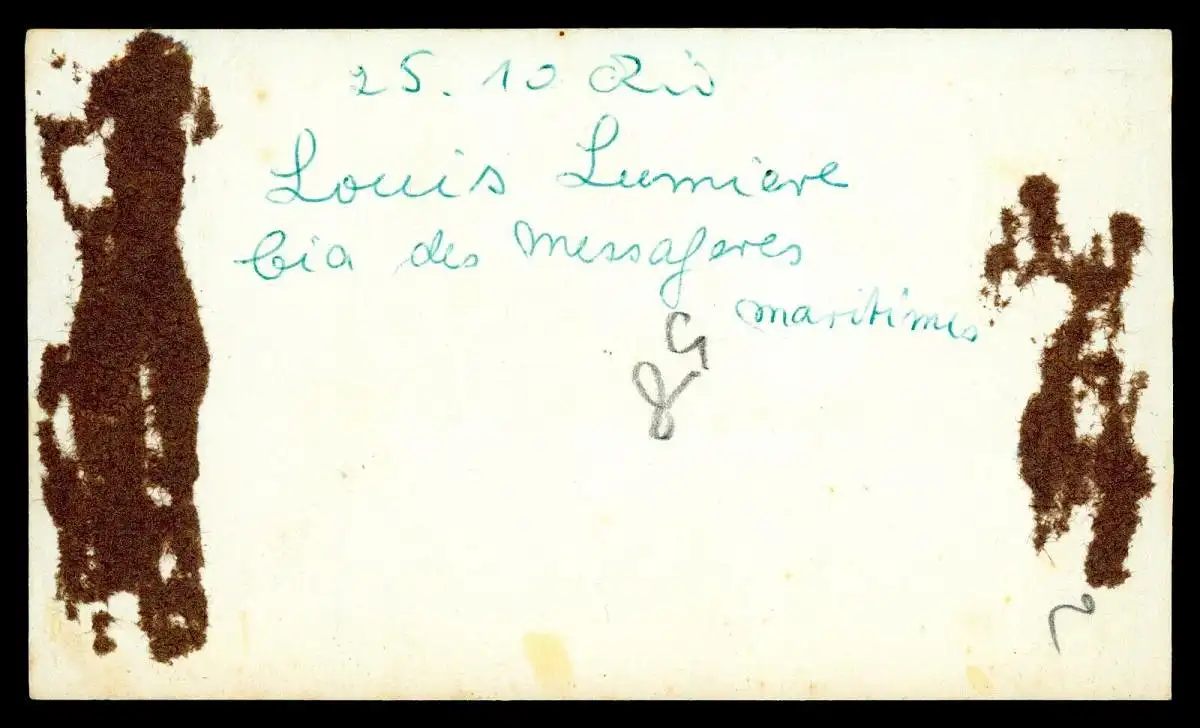 25. 10 Rio
Louis Lumiere
Cia des Messageres
maritimes